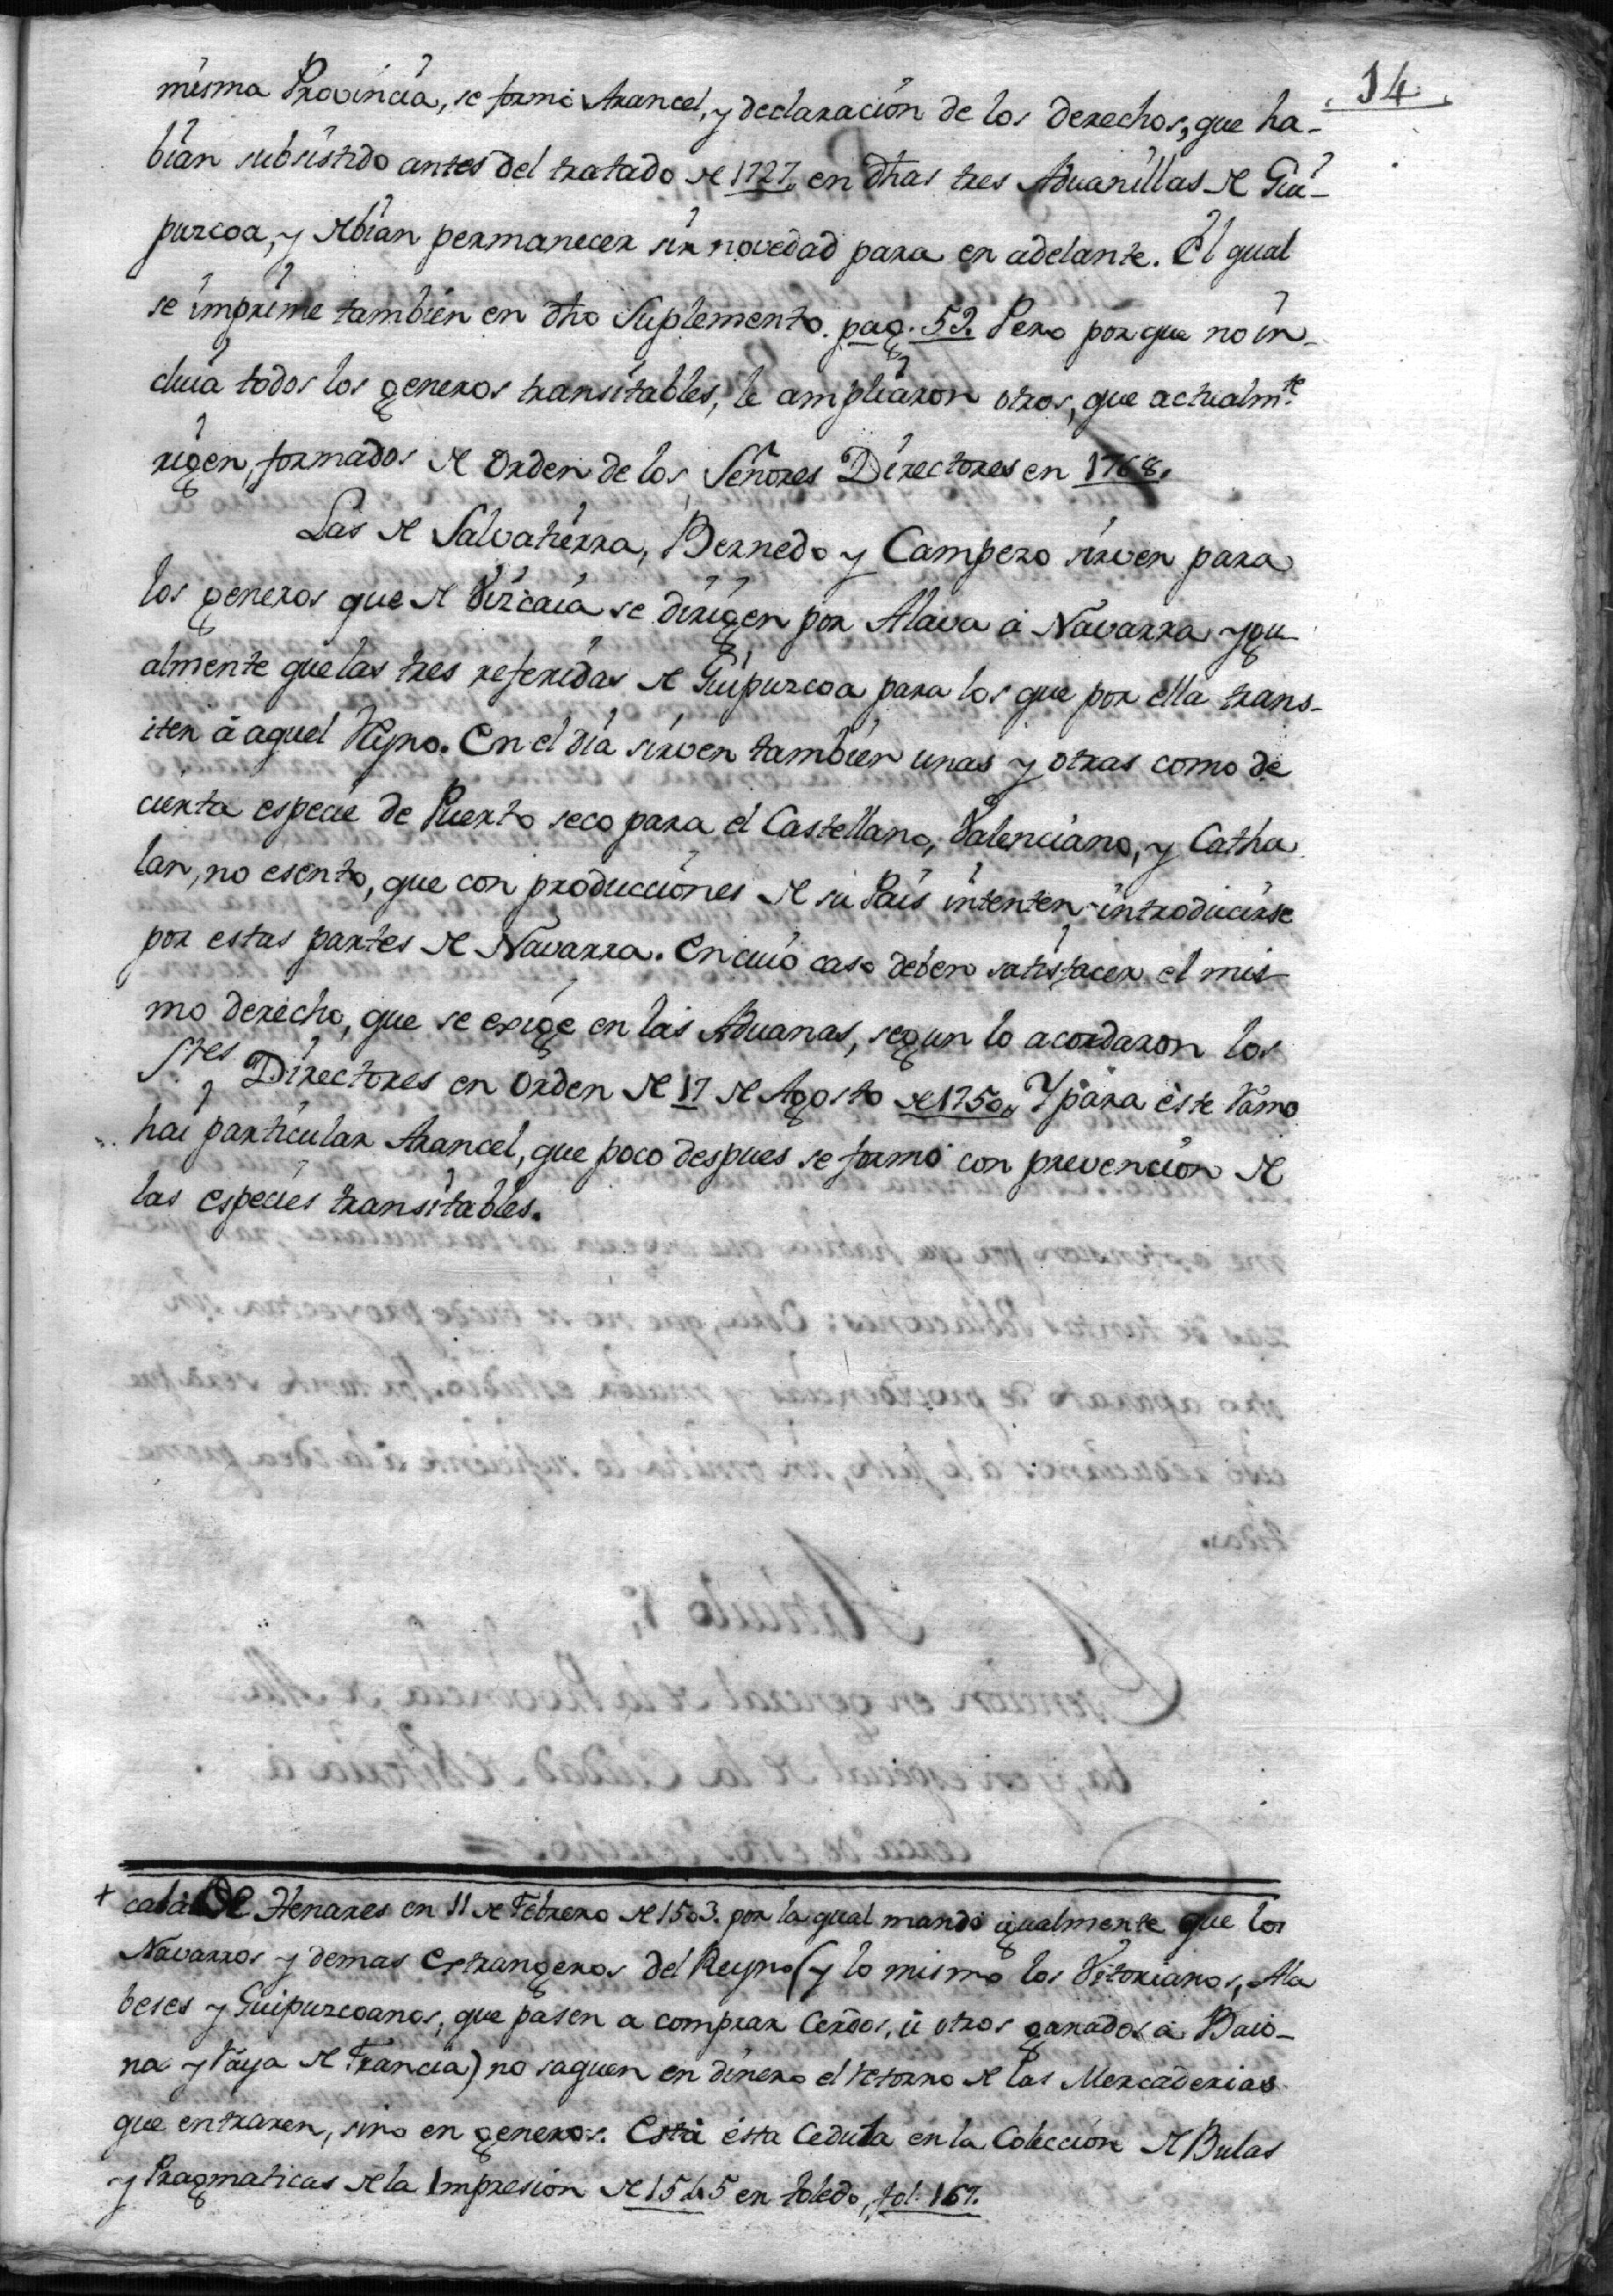 14
misma Provincia, se formó Arancel, y declaración de los derechos, que ha-
bian subsistido antes del tratado de 1727. en dhas tres Aduanillas de Gui-
puzcoa, y debian permanecer sin novedad para en adelante. El qual
se imprime tambien en dho Suplemento. pag. 52. Pero por que no in-
cluia todos los generos transitables, le ampliaron otros, que actualmte.
rigen, formados de orden de los Señores Directores en 1768.
Las de Salvatierra, Bernedo y Campezo sirven para
los generos que de Vizcaia se dirigen por Alava á Navarra ygu-
almente que las tres referidas de Guipuzcoa para los que por ella trans-
iten á aquel Reyno. En el dia sirven tambien unas y otras como de
cierta especie de Puerto seco para el Castellano, Valenciano, y Catha
lan, no esento, que con producciones de su Pais intenten introducirse
por estas partes de Navarra. En cuio caso deben satisfacer el mis-
mo derecho, que se exige en las Aduanas, segun lo acordaron los
Sres. Directores en orden de 17 de Agosto de 1750. Y para éste ramo
hai particular Arancel, que poco despues se formó con prevencion de
las especies transitables.
+ calá de Henares en 11 de Febrero de 1503. por la qual mandó igualmente que los
Navarros y demas Extrangeros del Reyno (y lo mismo los Vitorianos, Ala
beses y Guipuzcoanos, que pasen a comprar Cerdos, ú otros ganados á Baio-
na y raya de Francia) no saquen en dinero el retorno de las Mercaderias
que entraren, sino en generos. Está ésta Cedula en la Colección de Bulas
y Pragmaticas de la Impresion de 1545 en toledo, fol. 167.